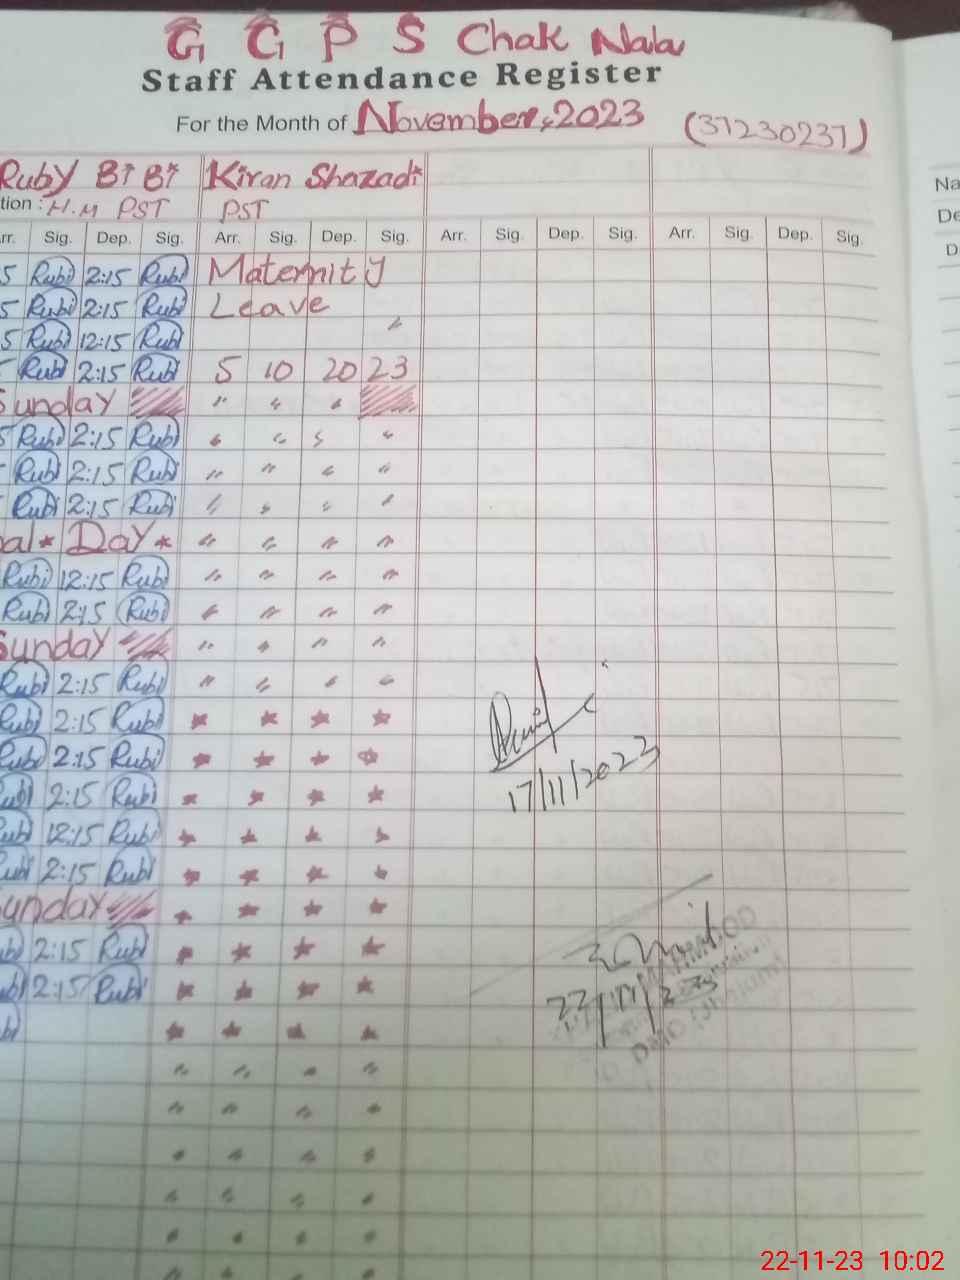 G G P S Chak Nala
Staff Attendance Register
For the Month of November, 2023 (37230237)
Ruby BiBi Kiran Shazadi
tion : H.M PST PST
rr. Sig. Dep. Sig. Arr. Sig. Dep. Sig. Arr. Sig. Dep. Sig. Arr. Sig. Dep. Sig.
5 Rubi 2:15 Rubi Maternity
5 Rubi 2:15 Rubi Leave
5 Rubi 12:15 Rubi
Rubi 2:15 Rubi 5 10 20 23
Sunday
5 Rubi 2:15 Rubi
Rubi 2:15 Rubi
Rubi 2:15 Rubi
bal * Day *
Rubi 12:15 Rubi
Rubi 2:15 Rubi
Sunday
Rubi 2:15 Rubi
Rubi 2:15 Rubi
Rubi 2:15 Rubi
ubi 2:15 Rubi
17/11/2023
ubi 12:15 Rubi
Rubi 2:15 Rubi
unday
ubi 2:15 Rubi
ubi 2:15 Rubi
22/11/2023
ubi
Na
De
D
22-11-23 10:02